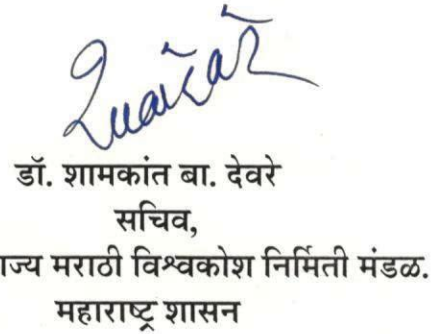 डॉ. शामकांत बा. देवरे
सचिव,
ाज्य मराठी विश्वकोश निर्मिती मंडळ.
महाराष्ट्र शासन